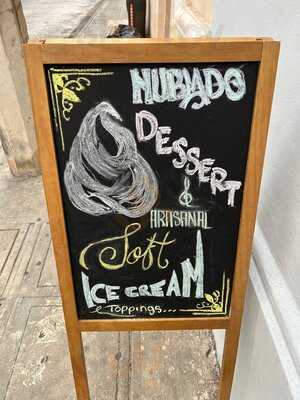 NUBLADO
DESSERT
ARTISANAL
Soft
ICE CREAM
e Toppings...